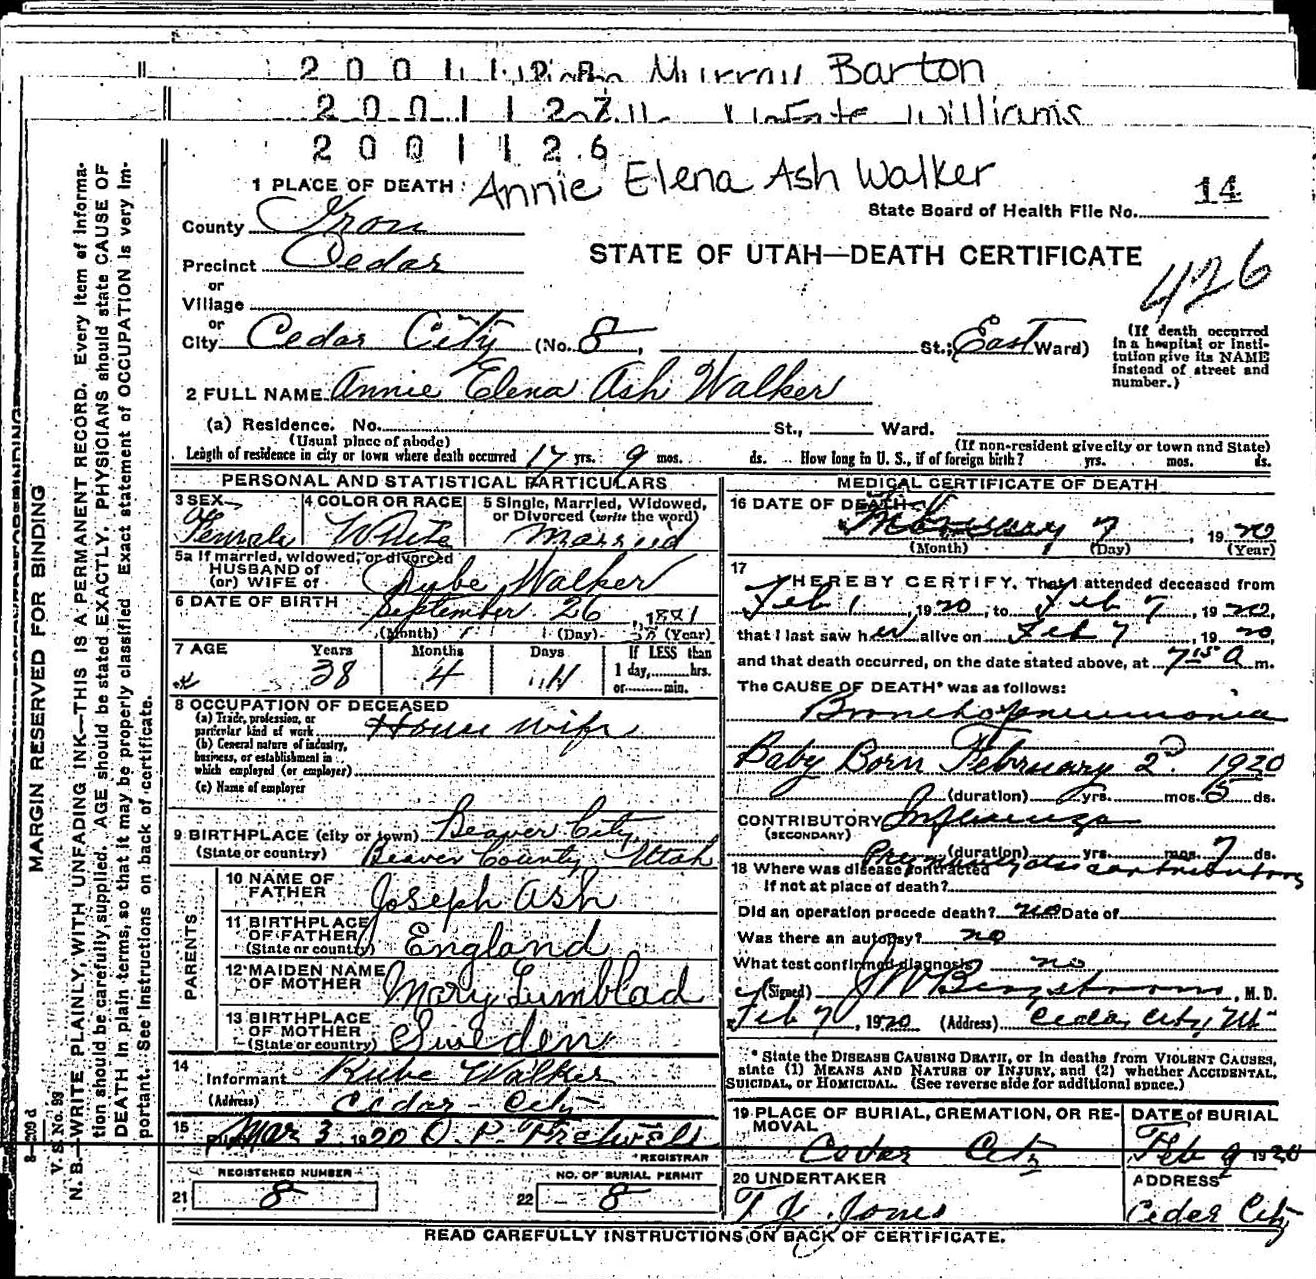 Murray Barton
2 0 0 1 1 2 7
Williams
2 0 0 1 1 2 6
Annie Elena Ash Walker
14
1 PLACE OF DEATH:
State Board of Health File No.
County Iron
STATE OF UTAH—DEATH CERTIFICATE
Precinct Cedar
or
Village
426
or
City Cedar City (No. 8, St.; East Ward)
(If death occurred in a hospital or institution give its NAME instead of street and number.)
2 FULL NAME Annie Elena Ash Walker
(a) Residence. No. St., Ward.
(Usual place of abode) (If non-resident give city or town and State)
Length of residence in city or town where death occurred 17 yrs. 9 mos. ds. How long in U. S., if of foreign birth? yrs. mos. ds.
PERSONAL AND STATISTICAL PARTICULARS
3 SEX Female
4 COLOR OR RACE White
5 Single, Married, Widowed, or Divorced (write the word) Married
5a If married, widowed, or divorced
HUSBAND of
(or) WIFE of Rube Walker
6 DATE OF BIRTH September 26, 1881
(Month) (Day) (Year)
7 AGE Years Months Days If LESS than
38 4 11 1 day, hrs.
or min.
8 OCCUPATION OF DECEASED
(a) Trade, profession, or particular kind of work House wife
(b) General nature of industry, business, or establishment in which employed (or employer)
(c) Name of employer
9 BIRTHPLACE (city or town) Beaver City,
(State or country) Beaver County Utah
PARENTS
10 NAME OF FATHER Joseph Ash
11 BIRTHPLACE OF FATHER (State or country) England
12 MAIDEN NAME OF MOTHER Mary Lumblad
13 BIRTHPLACE OF MOTHER (State or country) Sweden
14
Informant Rube Walker
(Address) Cedar City
15
Mar 3 1920 O. P. Fretwell
REGISTRAR
REGISTERED NUMBER
21 8
NO. OF BURIAL PERMIT
22 8
MEDICAL CERTIFICATE OF DEATH
16 DATE OF DEATH
February 7, 1920
(Month) (Day) (Year)
17
I HEREBY CERTIFY, That I attended deceased from
Feb 1, 1920, to Feb 7, 1920,
that I last saw her alive on Feb 7, 1920,
and that death occurred, on the date stated above, at 7 15 a m.
The CAUSE OF DEATH* was as follows:
Broncho pneumonia
Baby Born February 2d. 1920
(duration) yrs. mos. 5 ds.
CONTRIBUTORY Influenza
(SECONDARY)
(duration) yrs. mos. 7 ds.
Pregnancy also contributory
18 Where was disease contracted
If not at place of death?
Did an operation precede death? no Date of
Was there an autopsy? no
What test confirmed diagnosis no
(Signed) , M. D.
Feb 7, 1920 (Address) Cedar City Ut
* State the DISEASE CAUSING DEATH, or in deaths from VIOLENT CAUSES,
state (1) MEANS AND NATURE OF INJURY, and (2) whether ACCIDENTAL,
SUICIDAL, or HOMICIDAL. (See reverse side for additional space.)
19 PLACE OF BURIAL, CREMATION, OR REMOVAL
Cedar City
DATE of BURIAL
Feb 9 1920
20 UNDERTAKER
T J. Jones
ADDRESS
Cedar City
READ CAREFULLY INSTRUCTIONS ON BACK OF CERTIFICATE.
MARGIN RESERVED FOR BINDING
N. B.—WRITE PLAINLY, WITH UNFADING INK—THIS IS A PERMANENT RECORD. Every item of information should be carefully supplied. AGE should be stated EXACTLY. PHYSICIANS should state CAUSE OF DEATH in plain terms, so that it may be properly classified. Exact statement of OCCUPATION is very important. See instructions on back of certificate.
V. S. No. 99
8—209 d